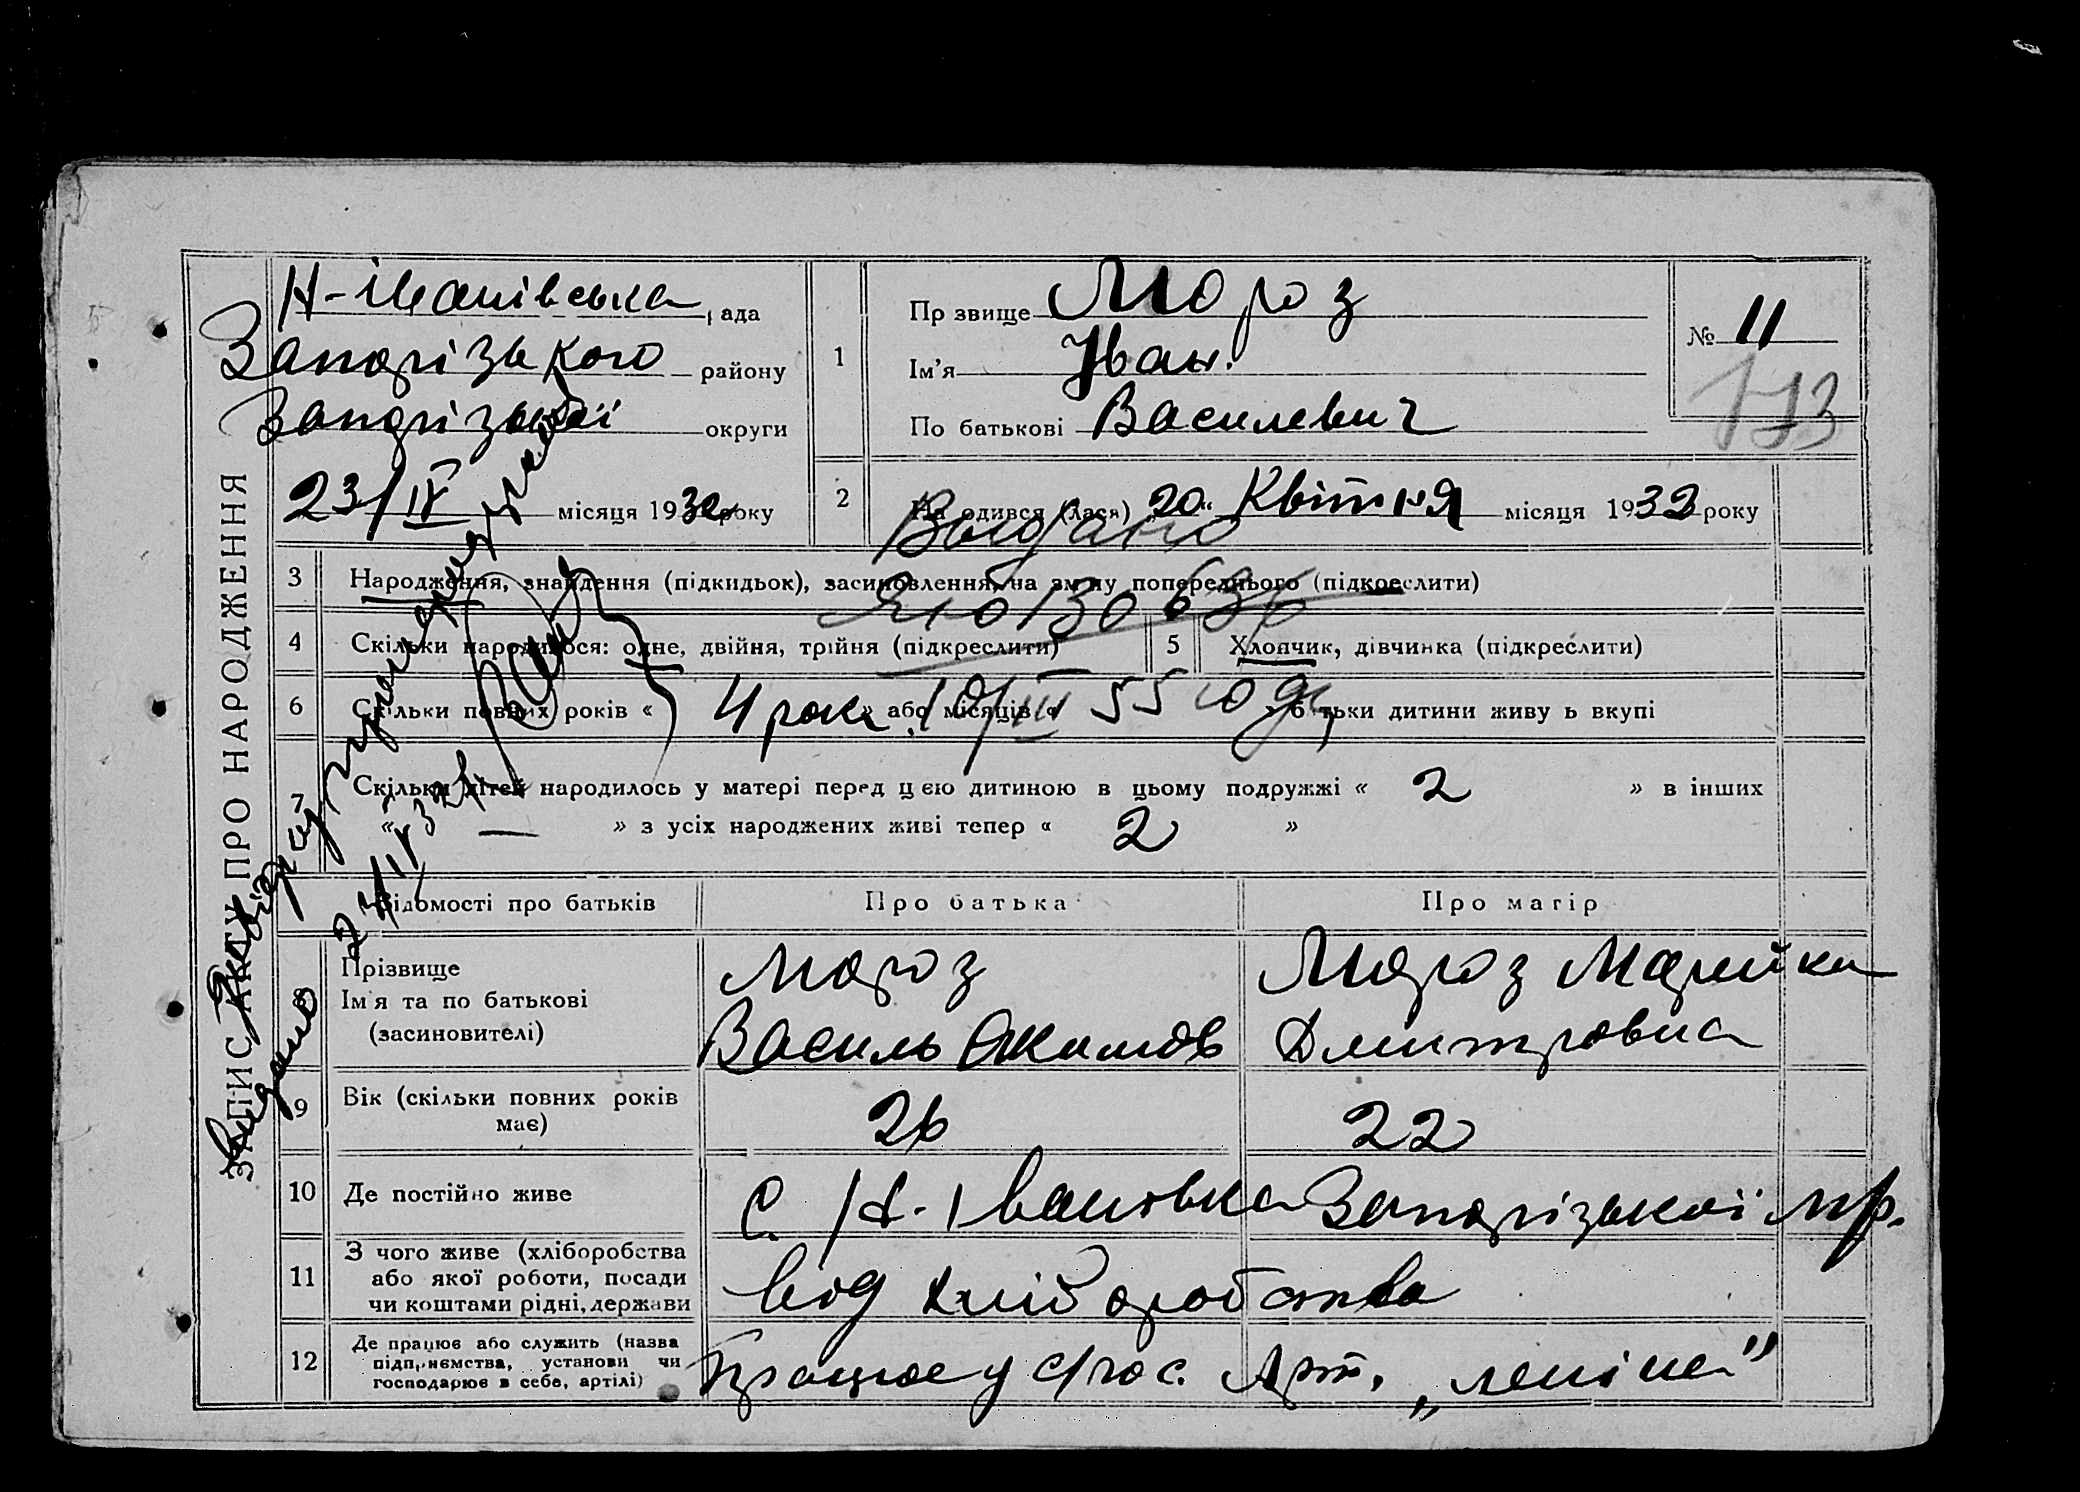 ЗАПИС АКТУ ПРО НАРОДЖЕННЯ
Н-Іванівська рада
Запорізького району
Запорізької округи
23/IV місяця 1932 року
1
Пр звище Мороз
Ім'я Іван.
По батькові Василевич
№ 11
173
2
На одився (лася) „20“ Квітня місяця 1932 року
Выдано
ЯЮ
3 Народження, знайдення (підкидьок), засиновлення, на зміну попереднього (підкреслити)
4 Скільки народилося: одне, двійня, трійня (підкреслити)
5 Хлопчик, дівчинка (підкреслити)
6 Скільки повних років « 4 рок. » або місяців « » б тьки дитини живу ь вкупі
10/III 55 года
7 Скільки дітей народилось у матері перед цею дитиною в цьому подружжі « 2 » в інших
« — » з усіх народжених живі тепер « 2 »
Відомості про батьків
Про батька
Про матір
8 Прізвище
Ім'я та по батькові
(засиновителі)
Мороз
Василь Якимов
Мороз Марийка
Дмитровна
9 Вік (скільки повних років
має)
26
22
10 Де постійно живе
с. Н-Івановка Запорізької мр.
11 З чого живе (хліборобства
або якої роботи, посади
чи коштами рідні, держави
від хліборобства
12 Де працює або служить (назва
підприємства, установи чи
господарює в себе, артілі)
Працює у с/гос. Арт. „Леніна”
Видано
23/IV 32